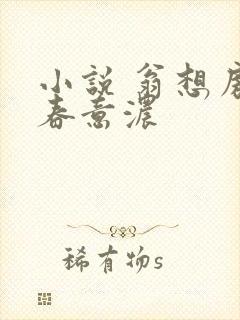 小説 翁想
春意濃
稀有物s